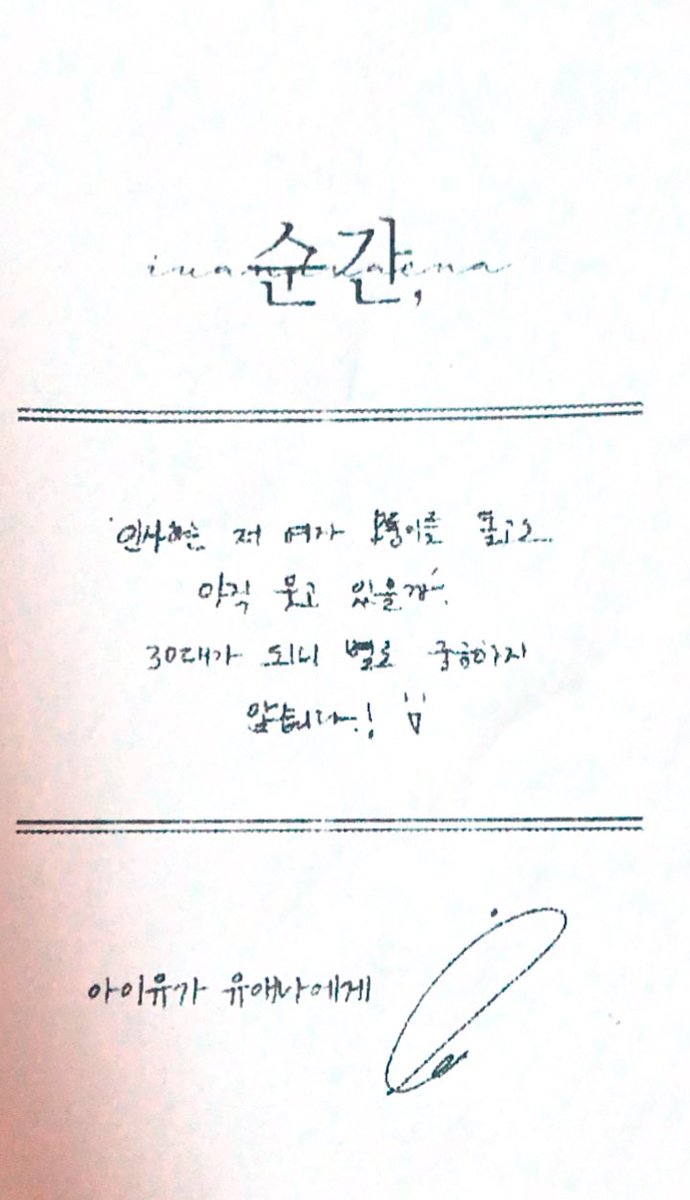 iu and uaena
순간,
'인사하는 저 여자 모퉁이를 돌고도
아직 웃고 있을까'.
30대가 되니 별로 궁금하지
않습니다..!
아이유가 유애나에게